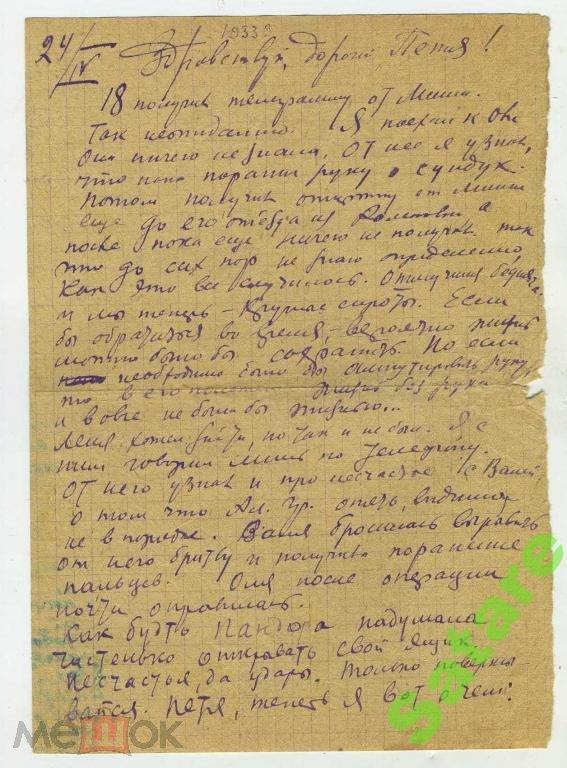 1933 г
24/IV Здравствуй, дорогой Петя!
18 получил телеграмму от Миши.
Так неожиданно. Я поехал к Оле
Она ничего не знала. От нее я узнал,
что папа поранил руку о сундук.
Потом получил открытку от Миши
еще до его отъезда из а
после пока еще ничего не получил так
что до сих пор не знаю определенно,
как это все случилось. Отмучился бедняга.
И мы теперь – круглые сироты. Если
бы обратиться во время, – вероятно жизнь
можно было бы сохранить. Но если
необходимо было бы ампутировать руку,
то в его жизнь без руки
и вовсе не была бы жизнью...
Леня хотел зайти, но так и не был. Я с
ним говорил лишь по телефону.
От него узнал и про несчастье с Валей
о том что Ал. Гр. опять, видимо
не в порядке. Валя бросилась вырывать
от него бритву и получила поранение
пальцев. Оля после операции
почти оправилась.
Как будто Пандора надумала
частенько открывать свой ящик.
Несчастья, да удары. Только поворачи
вайся. Петя, теперь я вот о чем:
Мешок
Satare